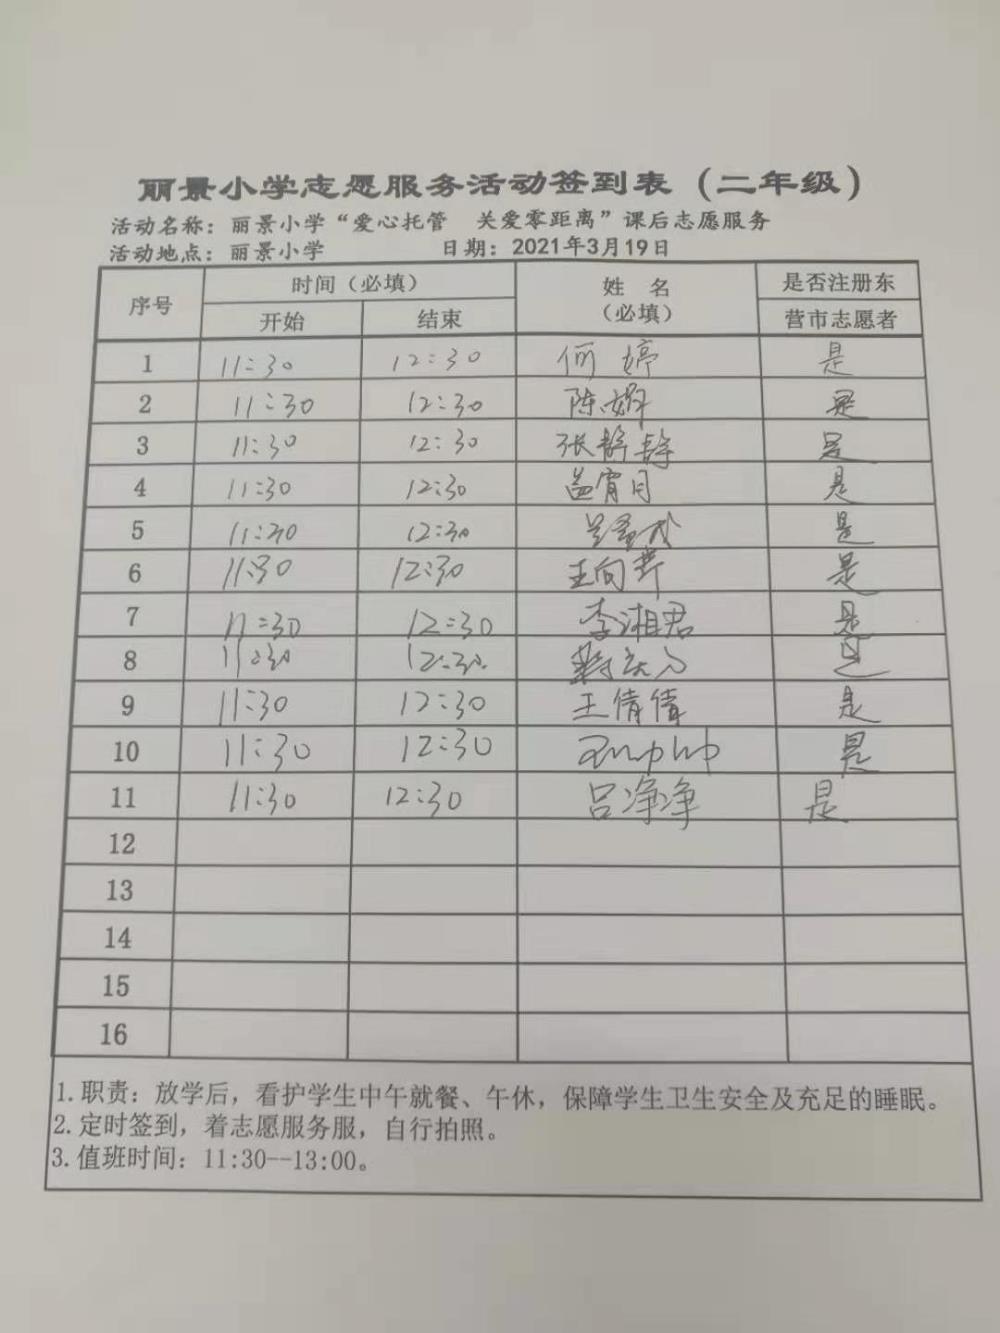 丽景小学志愿服务活动签到表（二年级）
活动名称：丽景小学“爱心托管 关爱零距离”课后志愿服务
活动地点：丽景小学 日期：2021年3月19日
序号 时间（必填） 姓 名（必填） 是否注册东营市志愿者
开始 结束
1 11:30 12:30 何婷 是
2 11:30 12:30 陈娟 是
3 11:30 12:30 张静静 是
4 11:30 12:30 盖宵月 是
5 11:30 12:30 是
6 11:30 12:30 王向 是
7 11:30 12:30 李湘君 是
8 11:30 12:30 是
9 11:30 12:30 王倩倩 是
10 11:30 12:30 是
11 11:30 12:30 吕净净 是
12
13
14
15
16
1.职责：放学后，看护学生中午就餐、午休，保障学生卫生安全及充足的睡眠。
2.定时签到，着志愿服务服，自行拍照。
3.值班时间：11:30--13:00。